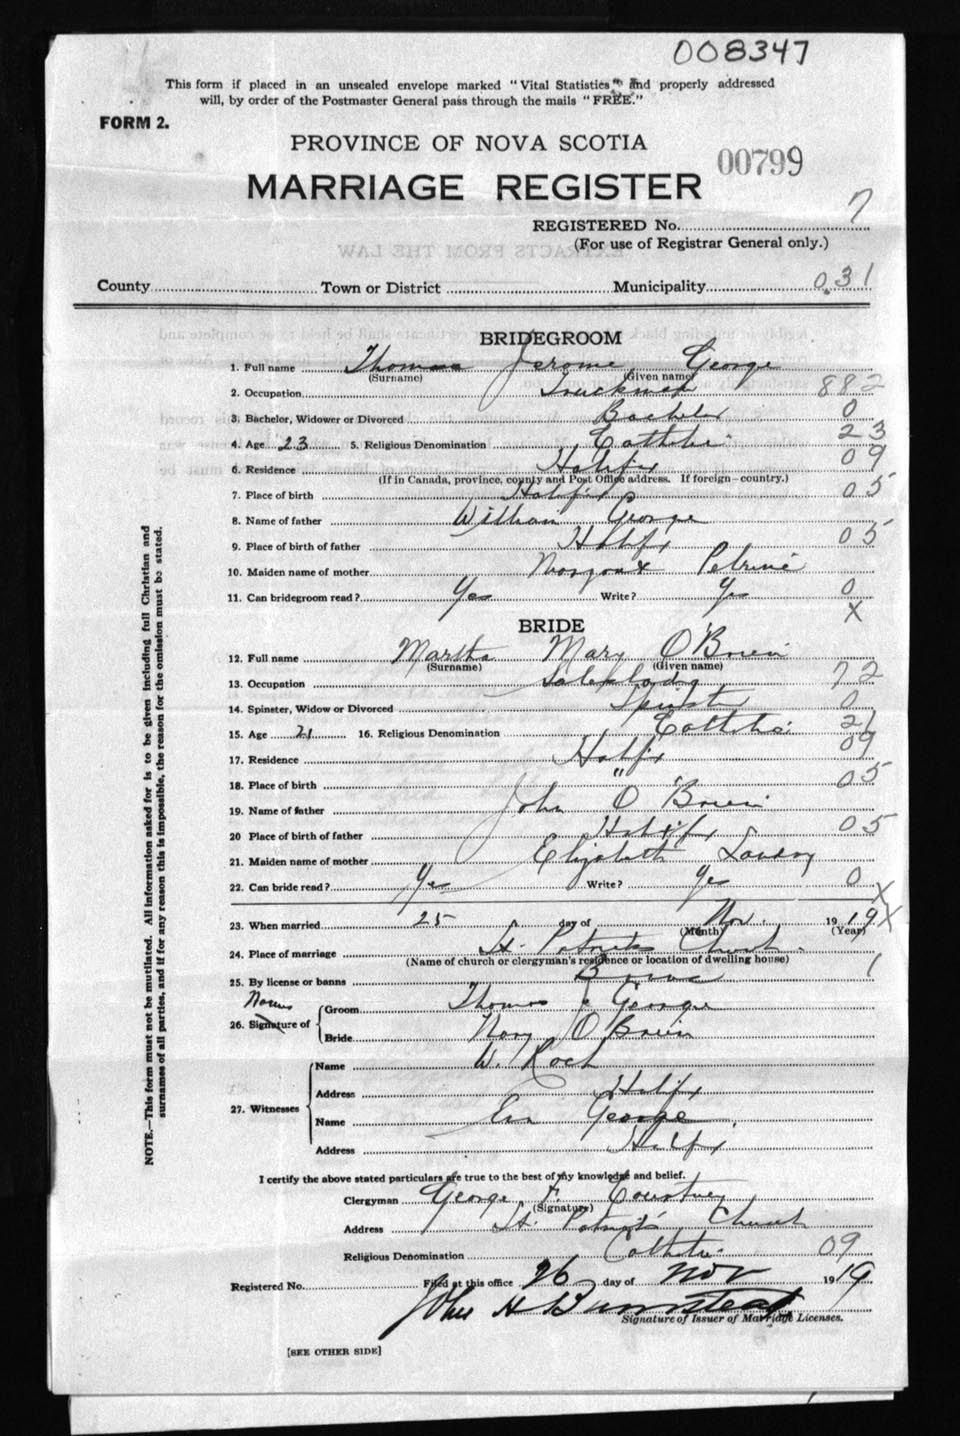 008347
This form if placed in an unsealed envelope marked "Vital Statistics" and properly addressed
will, by order of the Postmaster General pass through the mails "FREE."
FORM 2.
PROVINCE OF NOVA SCOTIA
00799
MARRIAGE REGISTER
REGISTERED No. 7
(For use of Registrar General only.)
EXTRACTS FROM THE LAW
County Town or District Municipality 031
BRIDEGROOM
1. Full name Thomas Jerome George
(Surname) (Given name)
2. Occupation Truckman 882
3. Bachelor, Widower or Divorced Bachelor 0
4. Age 23 5. Religious Denomination Catholic 23
6. Residence Halifax 09
(If in Canada, province, county and Post Office address. If foreign—country.)
7. Place of birth Halifax 05
8. Name of father William George
9. Place of birth of father Halifax 05
10. Maiden name of mother Margaret
11. Can bridegroom read? Yes Write? Yes 0
X
BRIDE
12. Full name Martha Mary O'Brien
(Surname) (Given name)
13. Occupation Saleslady 72
14. Spinster, Widow or Divorced Spinster 0
15. Age 21 16. Religious Denomination Catholic 21
17. Residence Halifax 09
18. Place of birth " 05
19. Name of father John O'Brien
20 Place of birth of father Halifax 05
21. Maiden name of mother Elizabeth Landry
22. Can bride read? Yes Write? Yes 0
X
23. When married 25 day of Nov. 1919 X
(Month) (Year)
24. Place of marriage St. Patricks Church
(Name of church or clergyman's residence or location of dwelling house)
25. By license or banns Banns 1
Names
26. Signature of Groom Thomas J George
Bride Mary O'Brien
27. Witnesses
Name W. Roch
Address Halifax
Name Eva George
Address Halifax
NOTE.—This form must not be mutilated. All information asked for is to be given including full Christian and
surnames of all parties, and if for any reason this is impossible, the reason for the omission must be stated.
I certify the above stated particulars are true to the best of my knowledge and belief.
Clergyman George F. Courtney
(Signature)
Address St. Patrick's Church
Religious Denomination Catholic 09
Registered No. Filed at this office 26 day of Nov 1919
John H Barnstead
Signature of Issuer of Marriage Licenses.
[SEE OTHER SIDE]